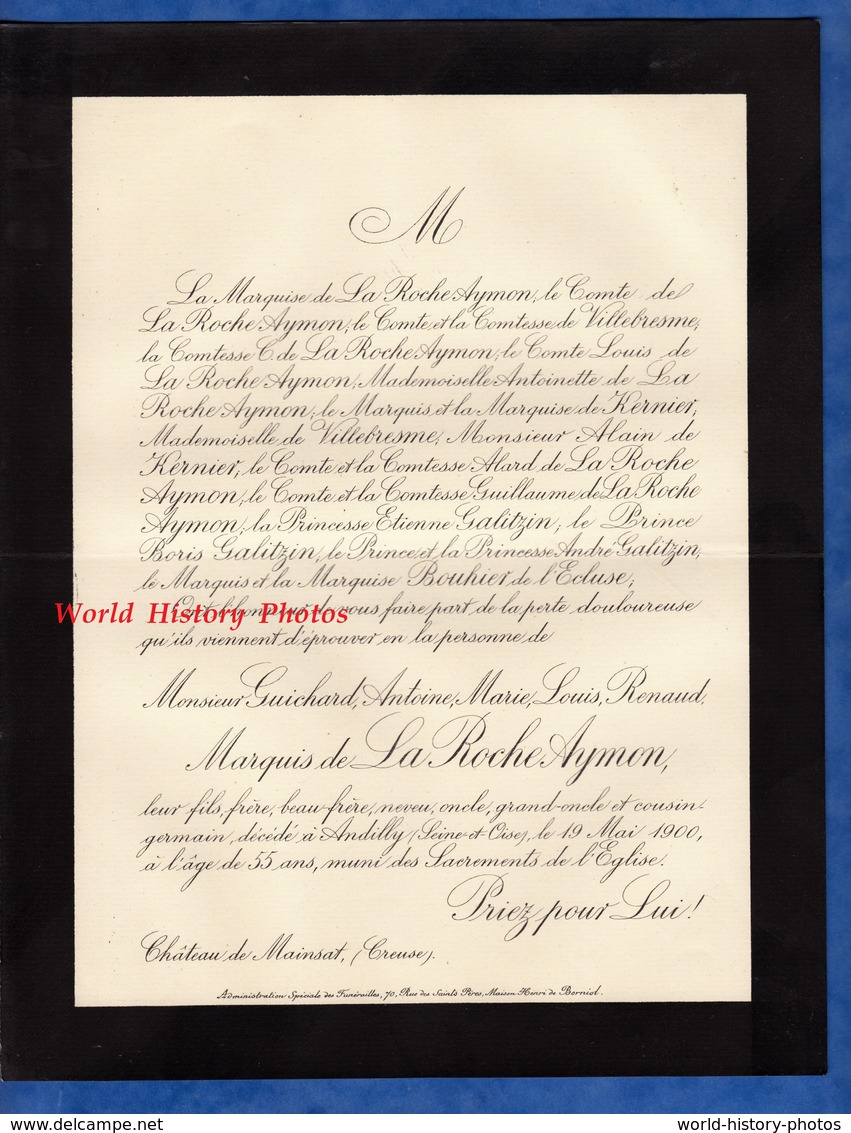 M
La Marquise de La Roche Aymon, le Comte de
La Roche Aymon, le Comte et la Comtesse de Villebresme,
la Comtesse C. de La Roche Aymon, le Comte Louis de
La Roche Aymon, Mademoiselle Antoinette de La
Roche Aymon, le Marquis et la Marquise de Kernier,
Mademoiselle de Villebresme, Monsieur Alain de
Kernier, le Comte et la Comtesse Alard de La Roche
Aymon, le Comte et la Comtesse Guillaume de La Roche
Aymon, la Princesse Etienne Galitzin, le Prince
Boris Galitzin, le Prince et la Princesse André Galitzin,
le Marquis et la Marquise Bouhier de l'Ecluse;
Ont l'honneur de vous faire part de la perte douloureuse
World History Photos
qu'ils viennent d'éprouver en la personne de
Monsieur Guichard, Antoine, Marie, Louis, Renaud,
Marquis de La Roche Aymon,
leur fils, frère, beau-frère, neveu, oncle, grand-oncle et cousin-
germain, décédé à Andilly (Seine-et-Oise), le 19 Mai 1900,
à l'âge de 55 ans, muni des Sacrements de l'Eglise.
Priez pour Lui!
Château de Mainsat, (Creuse).
Administration Spéciale des Funérailles, 70, Rue des Saints Pères, Maison Henri de Borniol.
world-history-photos